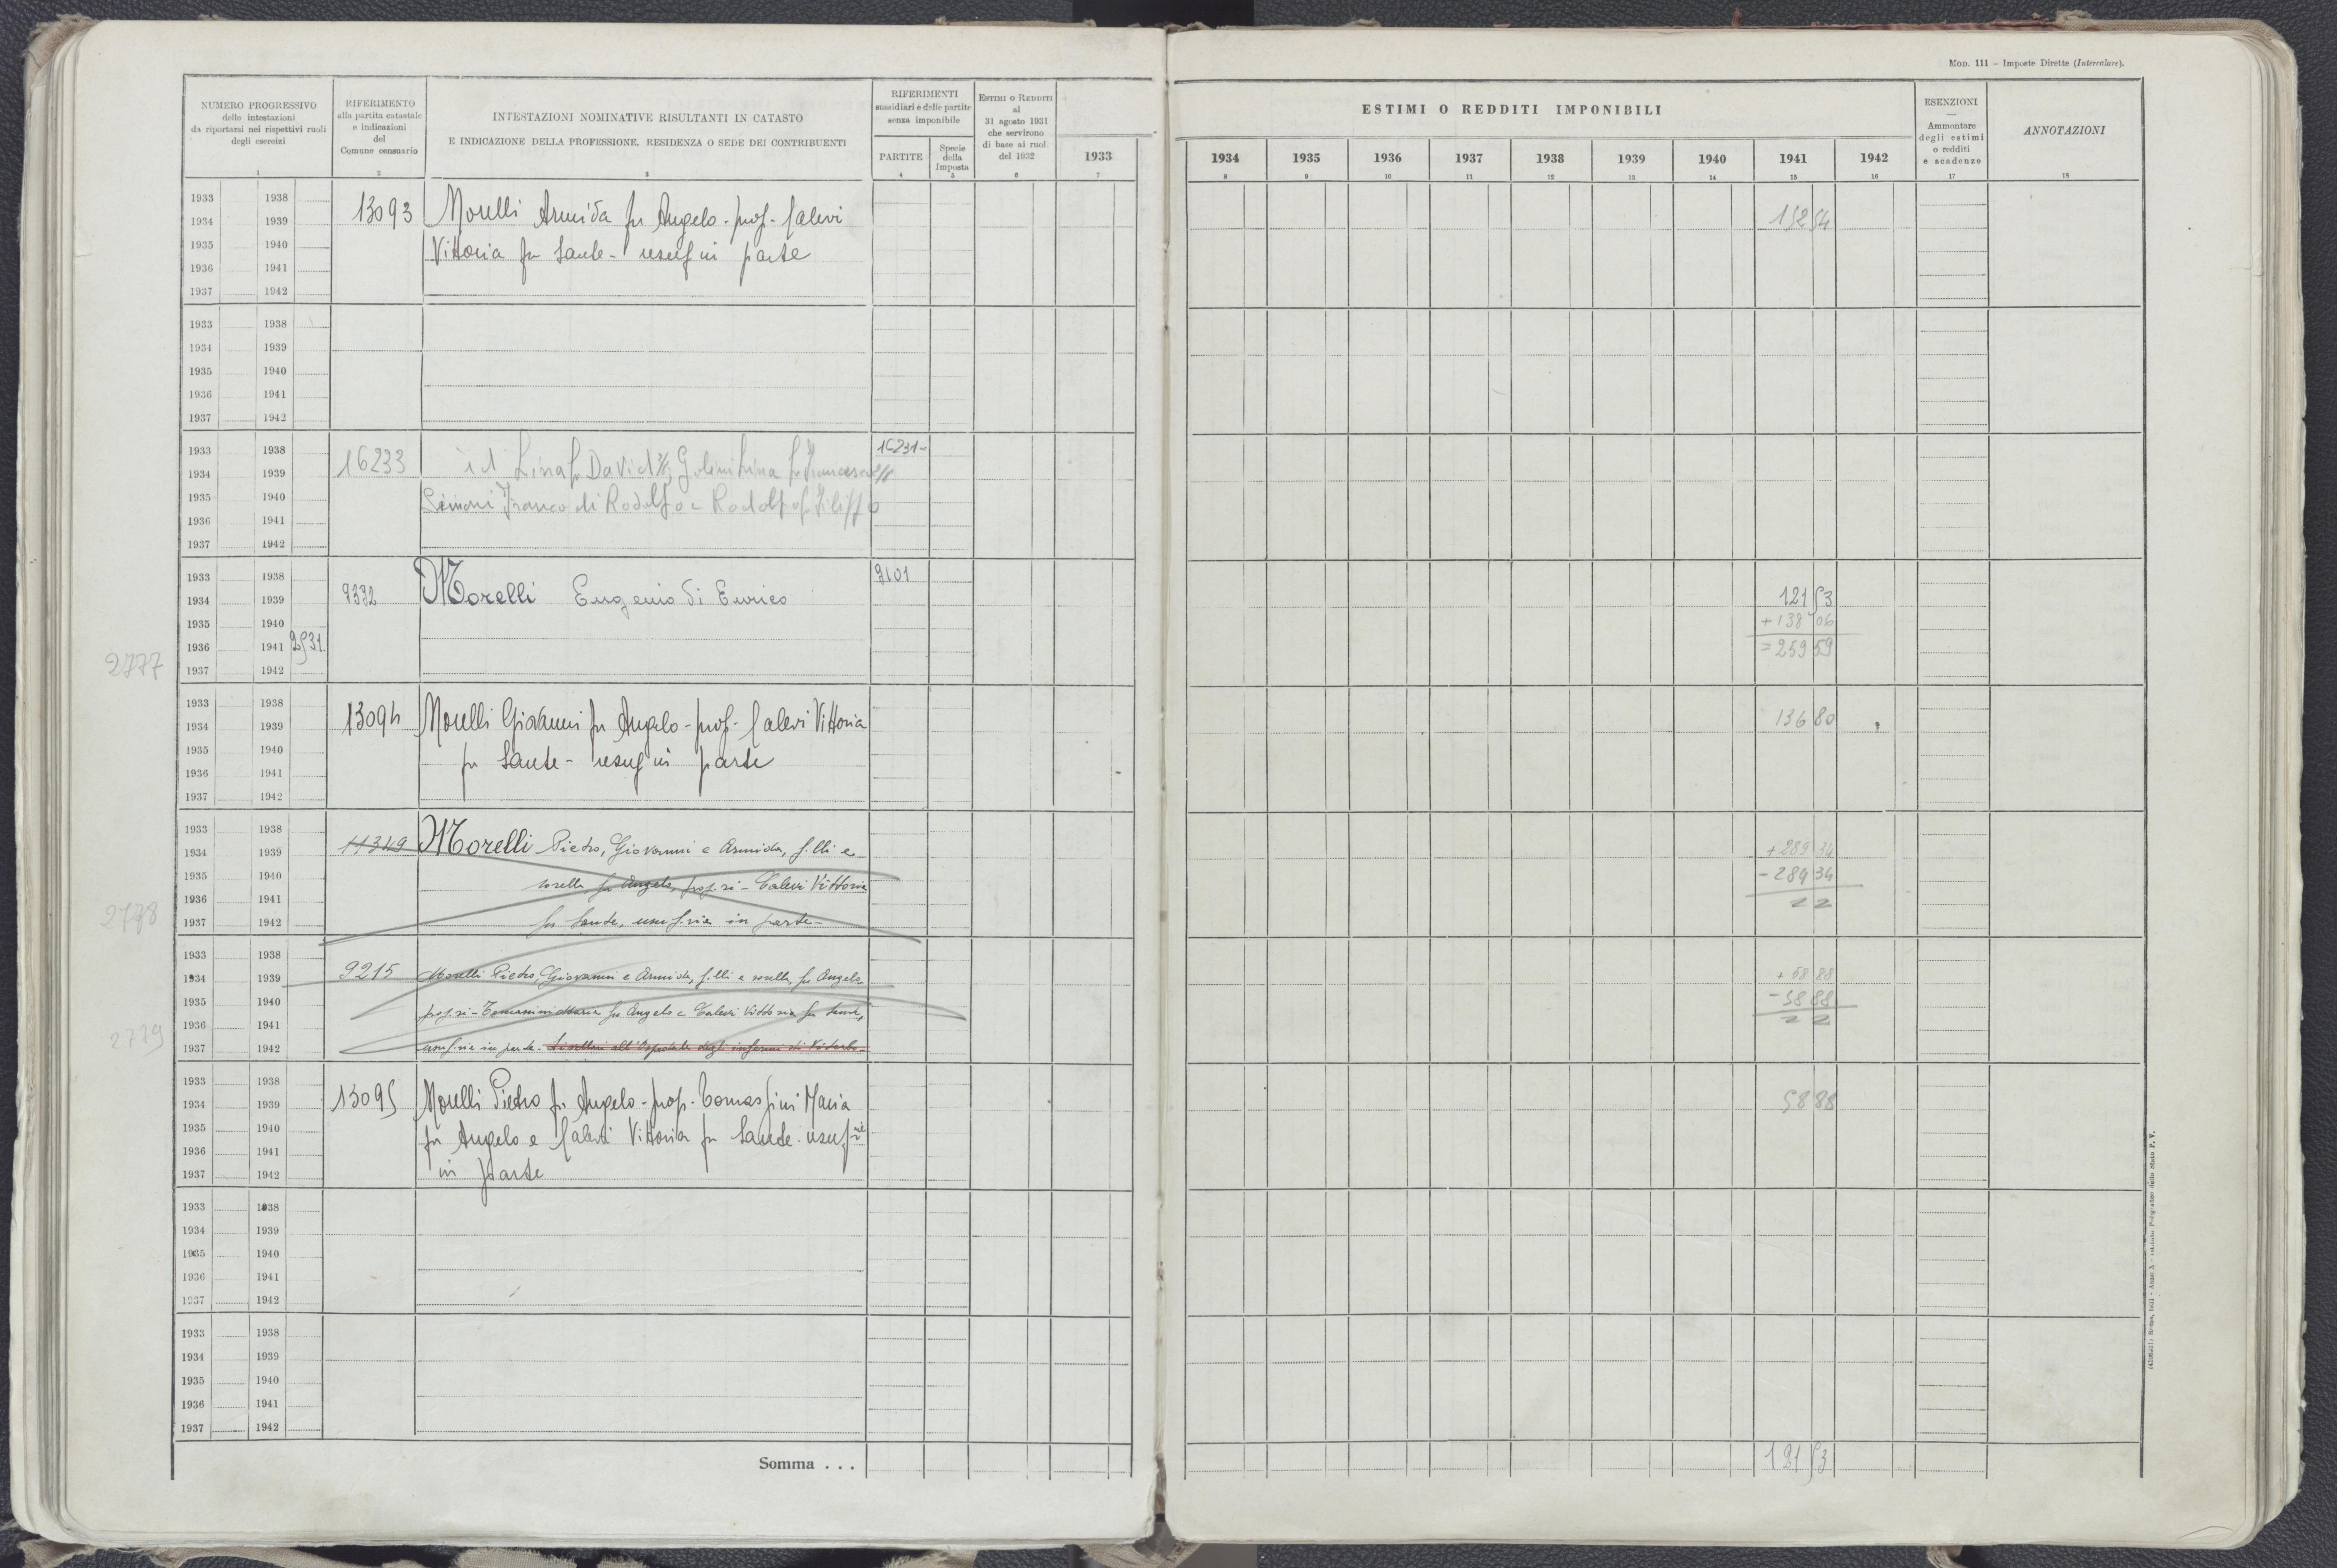 MOD. 111 – Imposte Dirette (Intercalare).
NUMERO PROGRESSIVO
delle intestazioni
da riportarsi nei rispettivi ruoli
degli esercizi
1
RIFERIMENTO
alla partita catastale
e indicazioni
del
Comune censuario
2
INTESTAZIONI NOMINATIVE RISULTANTI IN CATASTO
E INDICAZIONE DELLA PROFESSIONE, RESIDENZA O SEDE DEI CONTRIBUENTI
3
RIFERIMENTI
sussidiari e delle partite
senza imponibile
PARTITE
4
Specie
della
Imposta
5
ESTIMI O REDDITI
al
31 agosto 1931
che servirono
di base ai ruoli
del 1932
6
ESTIMI O REDDITI IMPONIBILI
1933 1934 1935 1936 1937 1938 1939 1940 1941 1942
7 8 9 10 11 12 13 14 15 16
ESENZIONI
—
Ammontare
degli estimi
o redditi
e scadenze
17
ANNOTAZIONI
18
1933 1938
1934 1939 13093 Morelli Armida fu Angelo - prof - Calevi 152 54
1935 1940 Vittoria fu Sante - usuf in parte
1936 1941
1937 1942
1933 1938
1934 1939
1935 1940
1936 1941
1937 1942
1933 1938 16231-
1934 1939 16233 id Lina fu David
1935 1940 Simoni Franco di Rodolfo e Rodolfo fu Filippo
1936 1941
1937 1942
1933 1938 9101
1934 1939 9332 Morelli Eugenio di Enrico 121 53
1935 1940 + 138 06
1936 1941 2531 = 259 59
2777
1937 1942
1933 1938
1934 1939 13094 Morelli Giovanni fu Angelo - prof - Calevi Vittoria 136 80
1935 1940 fu Sante - usuf in parte
1936 1941
1937 1942
1933 1938
1934 1939 11349 Morelli Pietro, Giovanni e Armida, f.lli e + 289 34
1935 1940 sorella fu Angelo, prop.ri - Calevi Vittoria - 289 34
1936 1941
2778
1937 1942 fu Sante, usuf.ria in parte -
1933 1938
1934 1939 9215 Morelli Pietro, Giovanni e Armida, f.lli e sorella fu Angelo + 58 88
1935 1940 prop.ri - Tomassini Maria fu Angelo e Calevi Vittoria fu Sante, - 58 88
1936 1941
2779
1937 1942 usuf.rie in parte - Livellari all'Ospedale degli infermi di Viterbo -
1933 1938
1934 1939 13095 Morelli Pietro fu Angelo - prop. Tomassini Maria 58 88
1935 1940 fu Angelo e Calevi Vittoria fu Sante usuf rie
1936 1941
1937 1942 in parte
1933 1938
1934 1939
1935 1940
1936 1941
1937 1942
1933 1938
1934 1939
1935 1940
1936 1941
1937 1942
Somma . . . 121 53